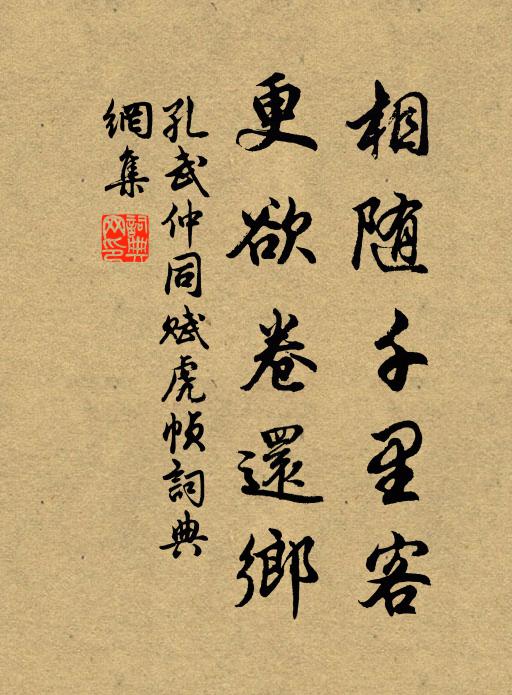 相随千里客
更欲卷還鄉
孔武仲同賦虎帧詞典
網集
詞典
网印